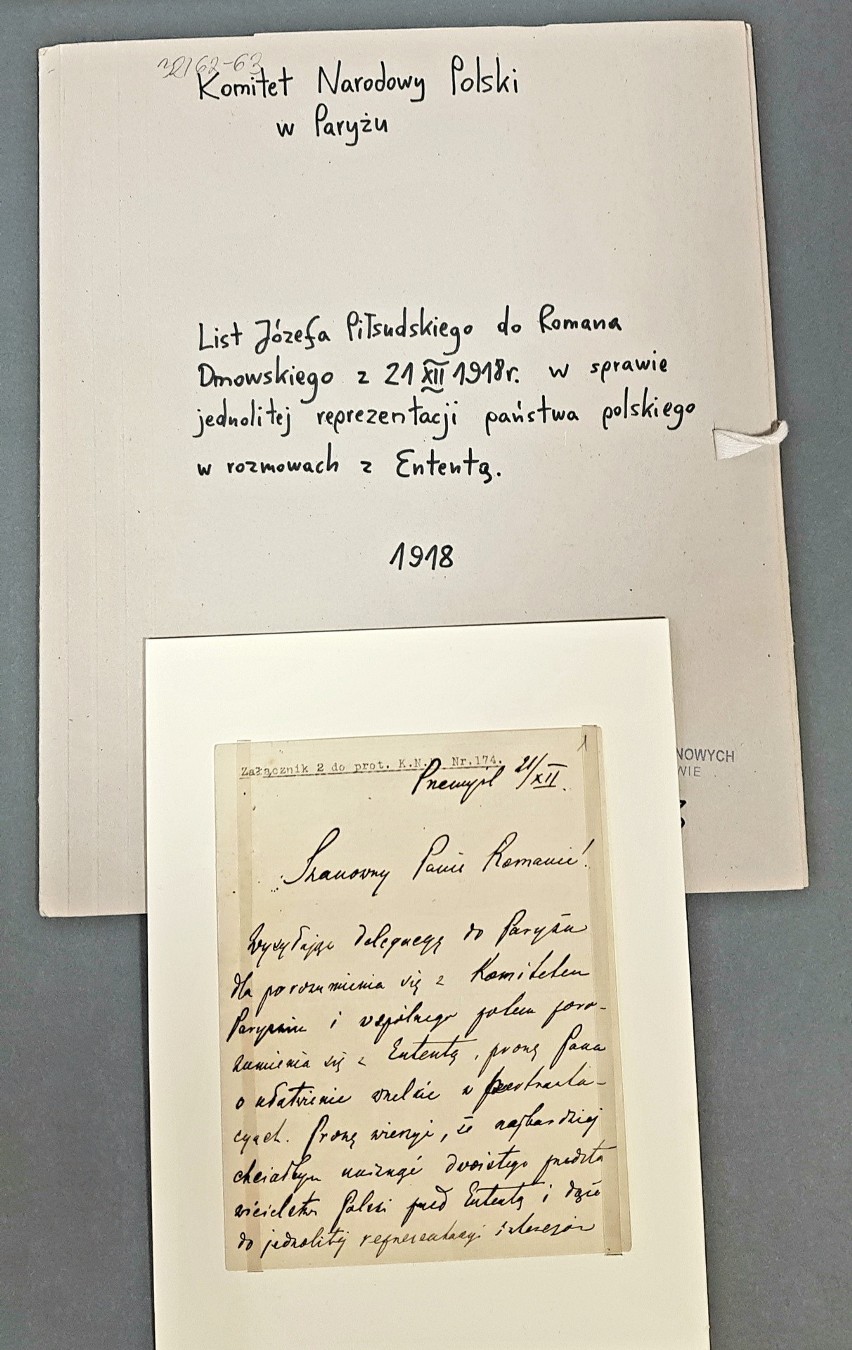 32162-63
Komitet Narodowy Polski
w Paryżu
List Józefa Piłsudskiego do Romana
Dmowskiego z 21 XII 1918r. w sprawie
jednolitej reprezentacji państwa polskiego
w rozmowach z Ententą.
1918
NOWYCH
WIE
1
Załącznik 2 do prot. K.N. Nr.174.
Przemyśl 21/XII.
Szanowny Panie Romanie!
Wysyłając delegację do Paryża
dla porozumienia się z Komitetem
Paryskim i wspólnego potem poro-
zumienia się z Ententą, proszę Pana
o ułatwienie w pertrakta-
cyach. Proszę wierzyć, że najbardziej
chciałbym uniknąć dwoistego przedsta
wicielstwa Polski przed Ententą i dążę
do jednolitej reprezentacyi interesów